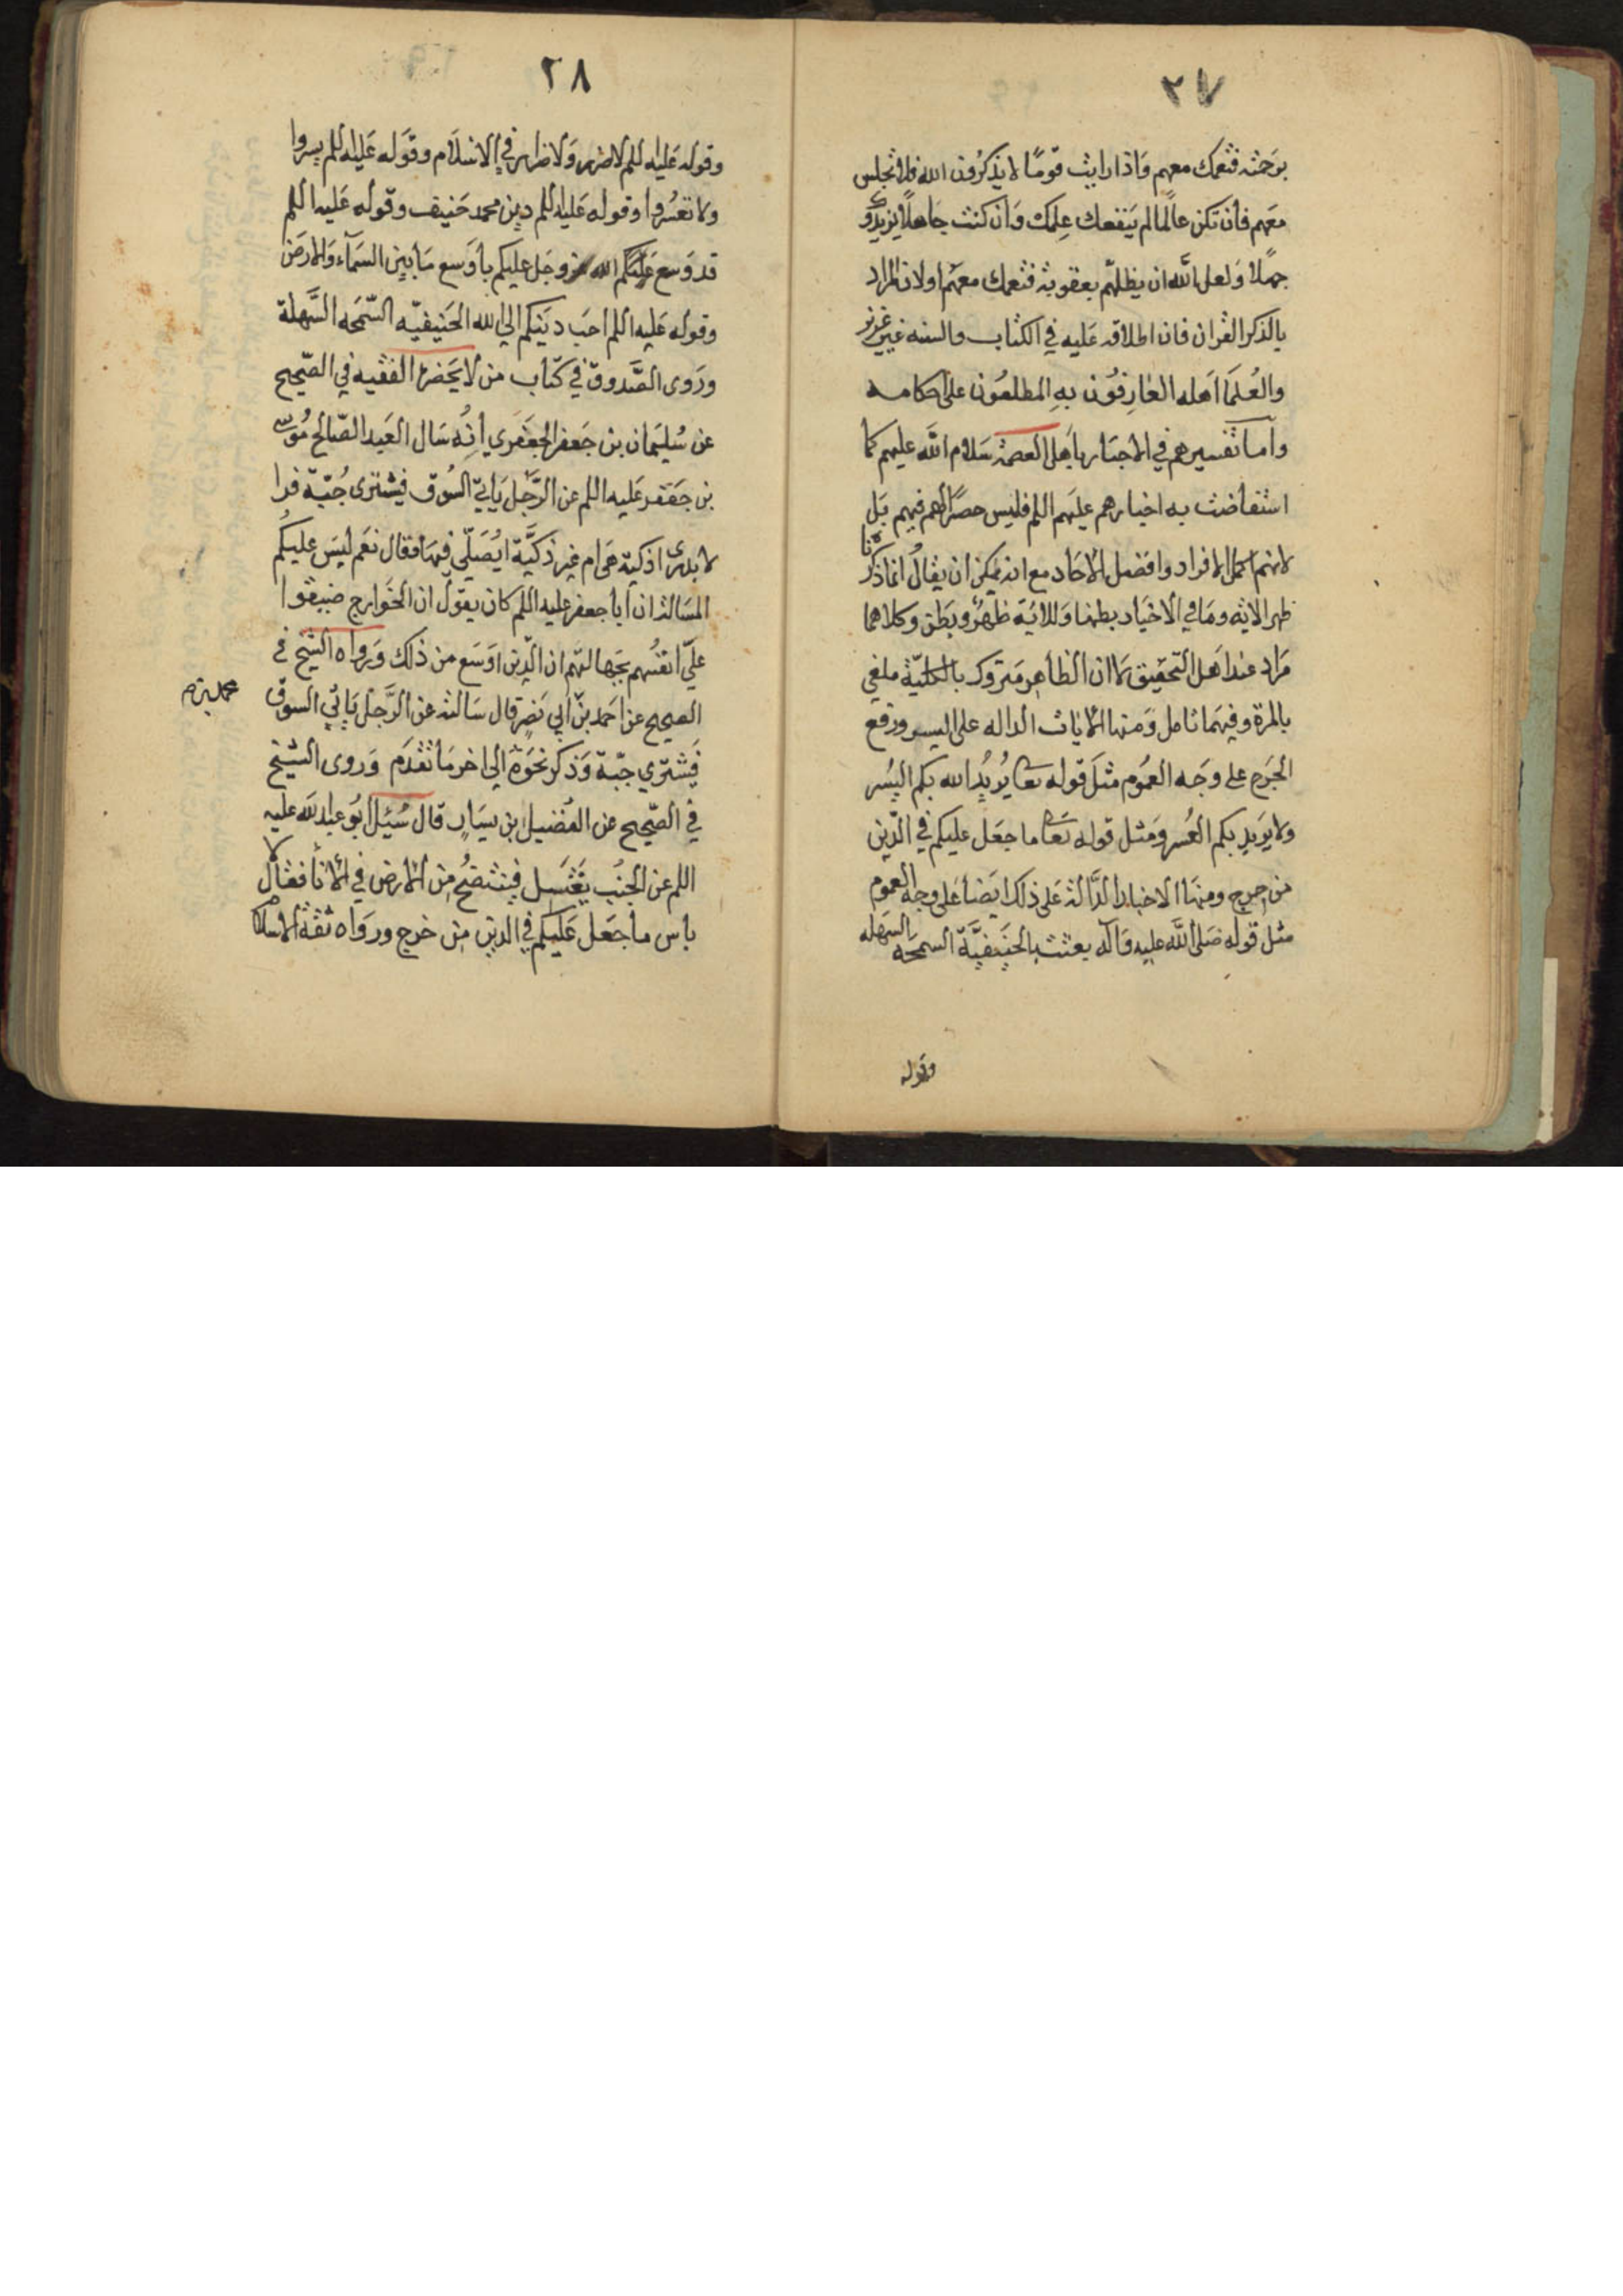 ٢٧
برحمته فتعمك معهم واذا رايت قومًا لا يذكرون الله فلا تجلس
معهم فان تكن عالمًا لم ينفعك علمك وان كنت جاهلًا يزيدوك
جهلًا ولعل الله ان يظلهم بعقوبة فتعمك معهم اولان المراد
بالذكر القران فان اطلاقه عليه في الكتاب والسنه غير عزيز
والعلما اهله العارفون به المطلعون على احكامه
واما تفسيرهم في الاخبار باهل العصمة سلام الله عليهم كما
استفاضت به اخبارهم عليهم اللم فليس حصرًا لهم فيهم بل
لانهم اكمل الافراد وافضل الاحاد مع انه يمكن ان يقال انما ذكرنا
ظهر الاية وما في الاخبار بطنها وللاية ظهر وبطن وكلاهما
مراد عند اهل التحقيق لا ان الظاهر متروك بالكلية ملغي
بالمرة وفيهما تامل ومنها الايات الداله على اليسر ورفع
الحرج على وجه العموم مثل قوله تعا يريد الله بكم اليسر
ولا يريد بكم العسر ومثل قوله تعا ما جعل عليكم في الدين
من حرج ومنها الاخبار الدالة على ذلك ايضا على وجه العموم
مثل قوله صلى الله عليه وآله بعثت بالحنيفية السمحه السهله
وقوله
٢٨
وقوله عليه اللم لا ضرر ولا ضرار في الاسلام وقوله عليه اللم يسروا
ولا تعسروا وقوله عليه اللم دين محمد حنيف وقوله عليه اللم
قد وسع عليكم الله عز وجل عليكم باوسع ما بين السماء والارض
وقوله عليه اللم احب دينكم الي الله الحنيفيه السمحه السهلة
وروى الصدوق في كتاب من لا يحضره الفقيه في الصحيح
عن سليمان بن جعفر الجعفري أنه سال العبد الصالح موسى
بن جعفر عليه اللم عن الرجل ياتي السوق فيشترى جبة فرا
لا يدرى اذكية هى ام غير ذكية ايصلي فيها فقال نعم ليس عليكم
المسالة ان ابا جعفر عليه اللم كان يقول ان الخوارج ضيقوا
علي انفسهم بجهالتهم ان الدين اوسع من ذلك ورواه الشيخ في
الصحيح عن احمد بن ابي نصر قال سالته عن الرجل ياتي السوق
فيشتري جبة وذكر نحوه الى اخر ما تقدم وروى الشيخ
في الصحيح عن الفضيل بن يسار قال سئل ابو عبد الله عليه
اللم عن الجنب يغتسل فينتضح من الارض في الانا فقال لا
باس ما جعل عليكم في الدين من حرج ورواه ثقة الاسلام